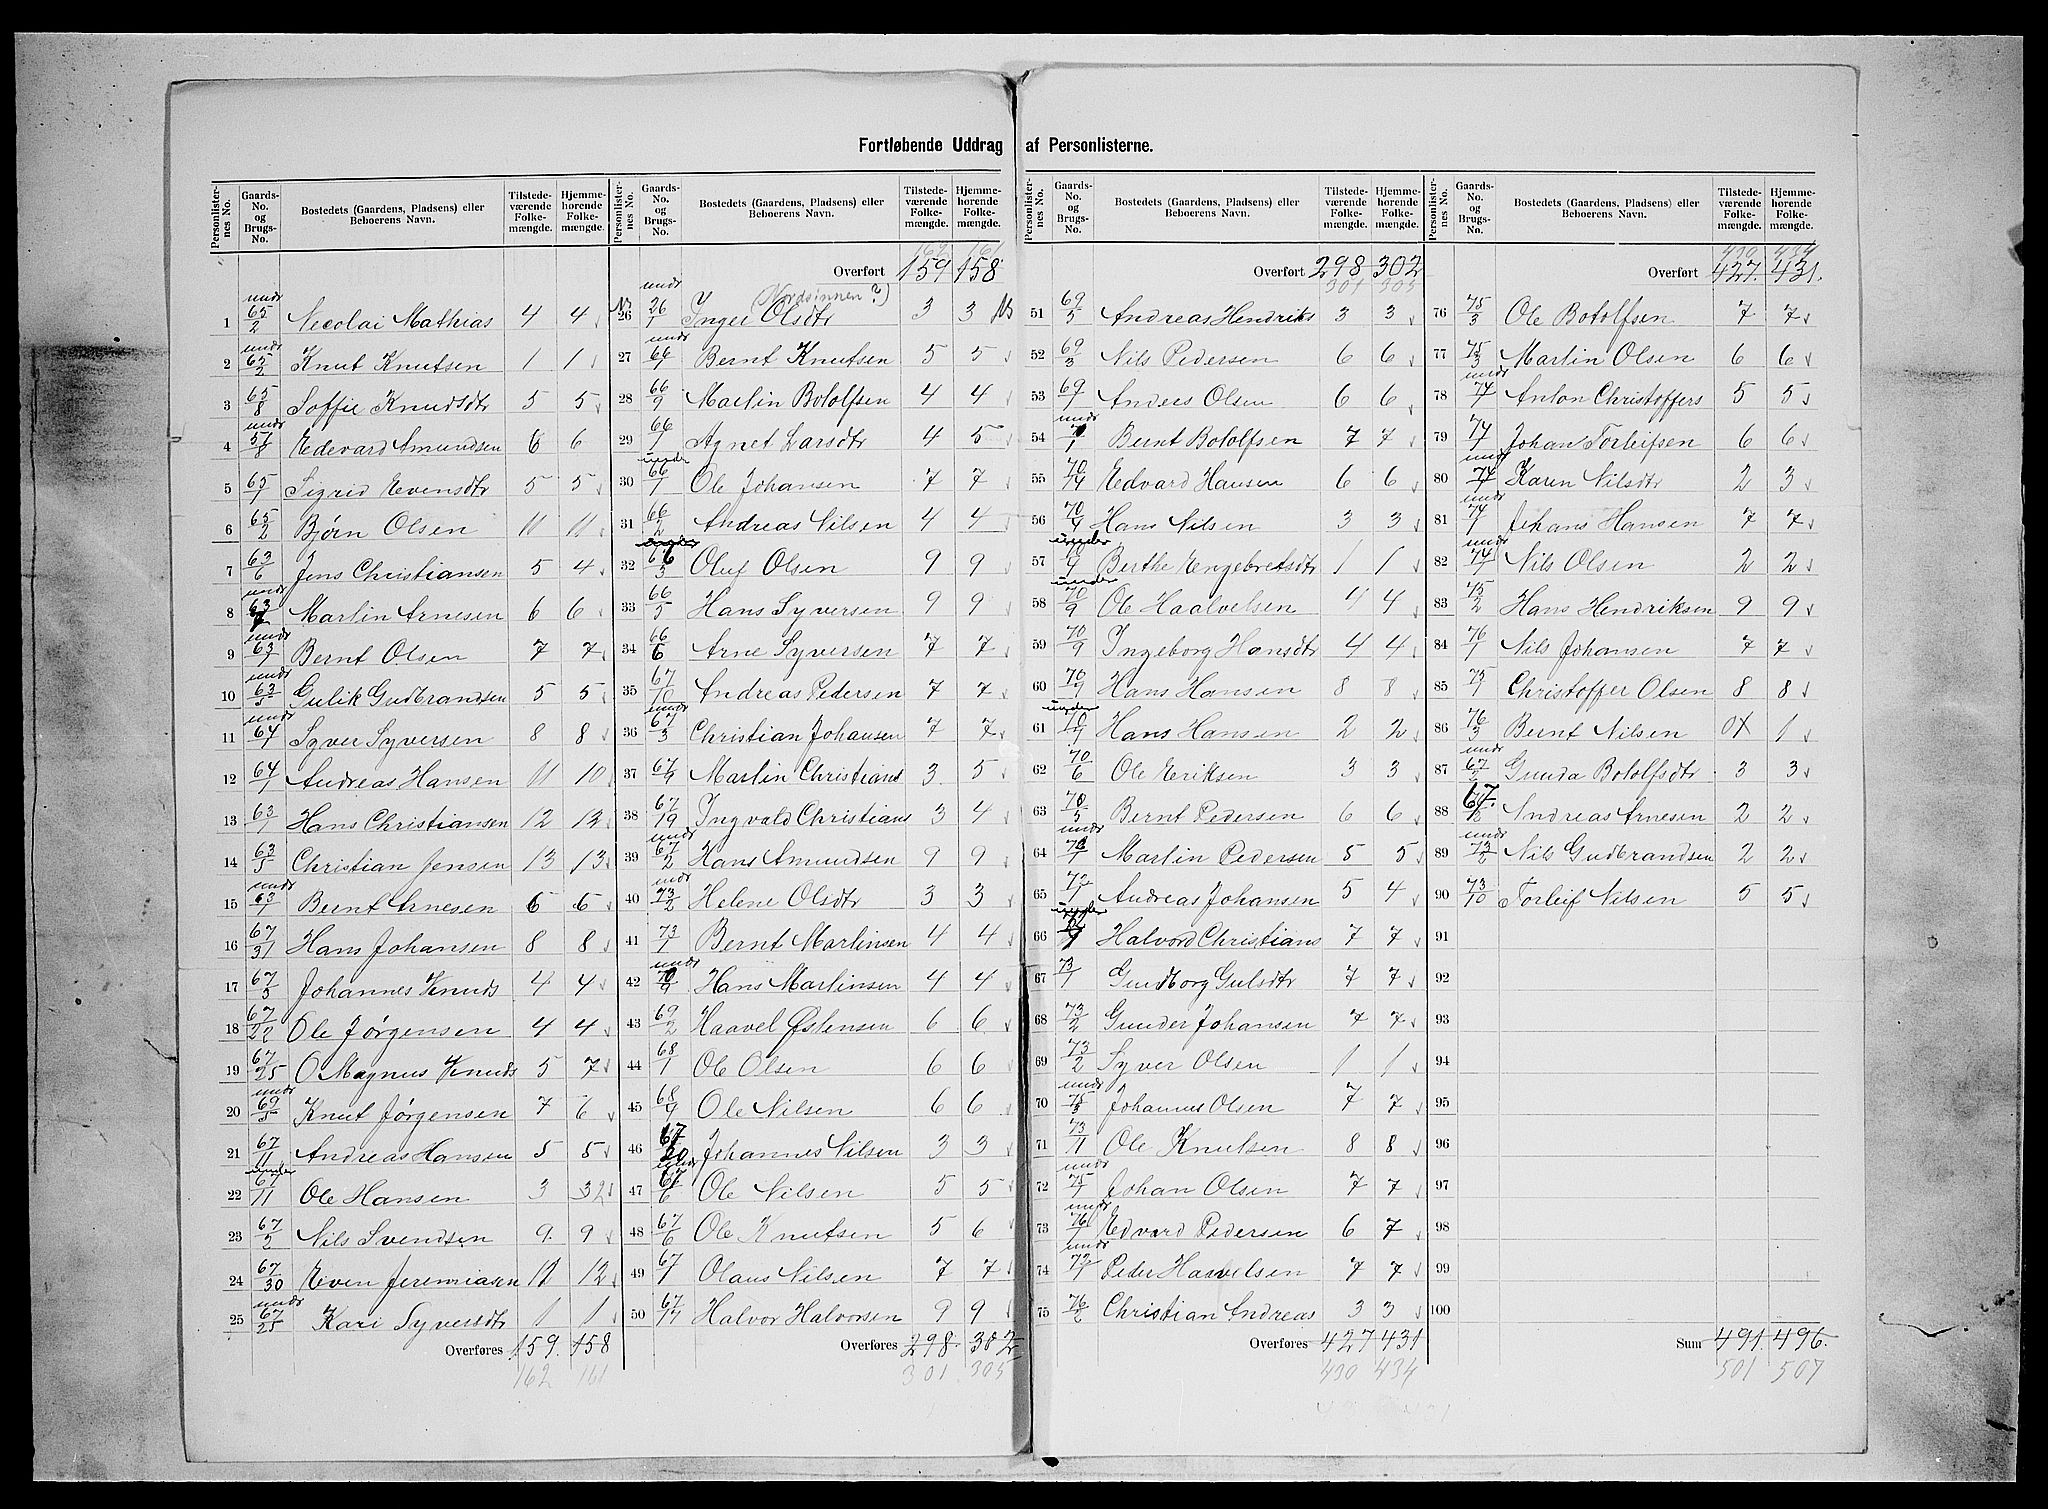 Fortløbende Uddrag af Personlisterne.
Personlisternes No. Gaards-No. og Brugs-No. Bostedets (Gaardens, Pladsens) eller Beboerens Navn. Tilstedeværende Folkemængde. Hjemmehørende Folkemængde.
1 undr 65/2 Necolai Mathias 4 4
2 undr 65/2 Knut Knutsen 1 1
3 65/8 Soffie Knudsdtr 5 5
4 undr 51/8 Edevard Amundsen 6 6
5 65/1 Sigrid Evensdtr 5 5
6 65/2 Bjørn Olsen 11 11
7 63/6 Jens Christiansen 5 4
8 undr 63/7 Martin Arnesen 6 6
9 undr 63/1 Bernt Olsen 7 7
10 undr 63/5 Gulik Gudbrandsen 5 5
11 undr 64/1 Syver Syversen 8 8
12 64/1 Andreas Hansen 11 10
13 63/1 Hans Christiansen 12 12
14 63/5 Christian Jensen 13 13
15 undr 63/1 Bernt Arnesen 6 6
16 67/31 Hans Johansen 8 8
17 67/5 Johannes Knuds 4 4
18 67/22 Ole Jørgensen 4 4
19 67/25 O Magnus Knuds 5 7
20 undr 69/5 Knut Jørgensen 7 6
21 67/11 Andreas Hansen 5 5
22 under 67/11 Ole Hansen 3 32
23 67/2 Nils Svendsen 9 9
24 67/30 Even Jeremiasen 11 12
25 undr 67/25 Kari Syversdtr 1 1
Overføres 159. 158
162 161
Personlisternes No. Gaards-No. og Brugs-No. Bostedets (Gaardens, Pladsens) eller Beboerens Navn. Tilstedeværende Folkemængde. Hjemmehørende Folkemængde.
162 161
Overført 159 158
(Nordsinnen?)
26 undr 26/1 Inger Olsdtr 3 3
27 undr 66/1 Bernt Knutsen 5 5
28 66/9 Martin Botolfsen 4 4
29 66/1 Agnet Larsdtr 4 5
30 under 66/1 Ole Johansen 7 7
31 66/2 Andreas Nilsen 4 4
32 66/5 Oluf Olsen 9 9
33 66/5 Hans Syversen 9 9
34 66/6 Arne Syversen 7 7
35 67/10 Andreas Pedersen 7 7
36 undr 67/3 Christian Johansen 7 7
37 67/9 Martin Christians 3 5
38 67/19 Ingvald Christians 3 4
39 undr 67/2 Hans Amundsen 9 9
40 undr 73/2 Helene Olsdtr 3 3
41 73/1 Bernt Martinsen 4 4
42 undr 70/9 Hans Martinsen 4 4
43 69/2 Haavel Østensen 6 6
44 68/1 Ole Olsen 6 6
45 68/9 Ole Nilsen 6 6
46 67/20 Johannes Nilsen 3 3
47 under 67/6 Ole Nilsen 5 5
48 67/6 Ole Knutsen 5 6
49 67/1 Olaus Nilsen 7 7
50 67/17 Halvor Halvorsen 9 9
Overføres 298. 302
301 305
Personlisternes No. Gaards-No. og Brugs-No. Bostedets (Gaardens, Pladsens) eller Beboerens Navn. Tilstedeværende Folkemængde. Hjemmehørende Folkemængde.
Overført 298 302
301 305
51 69/5 Andreas Hendriks 3 3
52 69/3 Nils Pedersen 6 6
53 69/1 Anders Olsen 6 6
54 undr 70/1 Bernt Botolfsen 7 7
55 70/14 Edvard Hansen 6 6
56 70/9 Hans Nilsen 3 3
57 under 70/9 Berthe Engebretsdtr 1 1
58 under 70/9 Ole Haalvelsen 4 4
59 70/9 Ingeborg Hansdtr 4 4
60 70/7 Hans Hansen 8 8
61 under 70/7 Hans Hansen 2 2
62 70/6 Ole Eriksen 3 3
63 70/5 Bernt Pedersen 6 6
64 undr 70/1 Martin Pedersen 5 5
65 72/1 Andreas Johansen 5 4
66 under Halvord Christians 7 7
67 73/1 Gundborg Gulsdtr 7 7
68 73/2 Gunder Johansen 7 7
69 73/2 Syver Olsen 1 1
70 undr 75/3 Johannes Olsen 7 7
71 73/1 Ole Knutsen 8 8
72 undr 75/1 Johan Olsen 7 7
73 undr 76/1 Edvard Pedersen 6 7
74 undr 72/1 Peder Haavelsen 7 7
75 76/2 Christian Andreas 3 3
Overføres 427 431
430 434
Personlisternes No. Gaards-No. og Brugs-No. Bostedets (Gaardens, Pladsens) eller Beboerens Navn. Tilstedeværende Folkemængde. Hjemmehørende Folkemængde.
430 434
Overført 427. 431.
76 75/3 Ole Botolfsen 7 7
77 75/3 Martin Olsen 6 6
78 undr 74/1 Anton Christoffers 5 5
79 74/1 Johan Torleifsen 6 6
80 undr 74/1 Karen Nilsdtr 2 3
81 undr 74/1 Johans Hansen 7 7
82 undr 74/1 Nils Olsen 2 2
83 75/2 Hans Hendriksen 9 9
84 76/1 Nils Johansen 7 7
85 75/1 Christoffer Olsen 8 8
86 76/3 Bernt Nilsen 0X 1
87 undr 67/2 Gunda Botolfsdtr 3 3
88 67. Andreas Arnesen 2 2
89 undr 73/2 Nils Gudbrandsen 2 2
90 73/10 Torleif Nilsen 5 5
91
92
93
94
95
96
97
98
99
100
Sum 491 496.
501 507